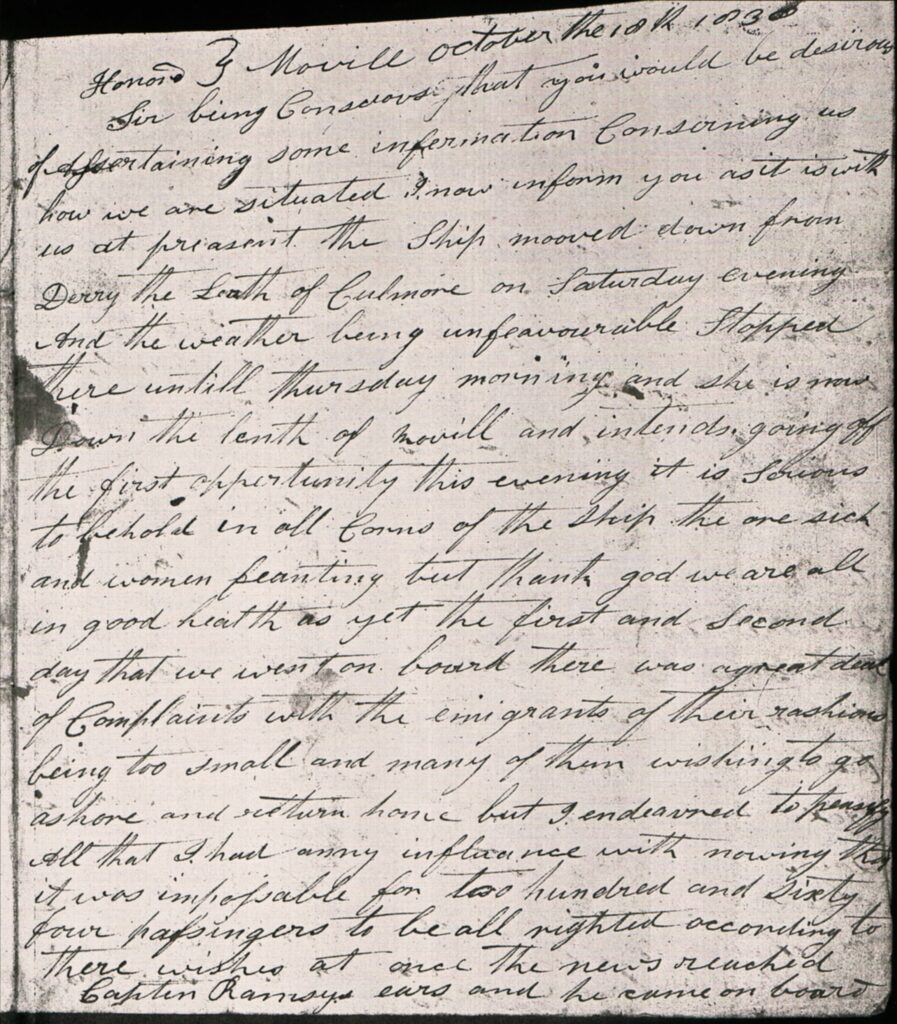 Honord } Movill October the 18th 183
Sir being Conscoors that you would be desirous
of Assertaining some infermation Conserning us
how we are situated I now inform you as it is with
us at preasent the Ship mooved down from
Derry the Lenth of Culmore on Saturday evening
And the weather being unfeavourable Stopped
there untill thursday morning and she is now
Down the lenth of Movill and intends going off
the first oppertunity this evening it is Serious
to behold in all Corns of the Ship the are sick
and women feanting but thank god we are all
in good health as yet the first and Second
day that we went on board there was a great deal
of Complaints with the emigrants of their rashions
being too small and many of them wishiing to go
ashore and return home but I endeavred to
All that I had anny influance with nowing that
it was impossable for two hundred and Sixty
four passingers to be all righted according to
there wishes at once the news reached
Capten Ramsys ears and he came on board